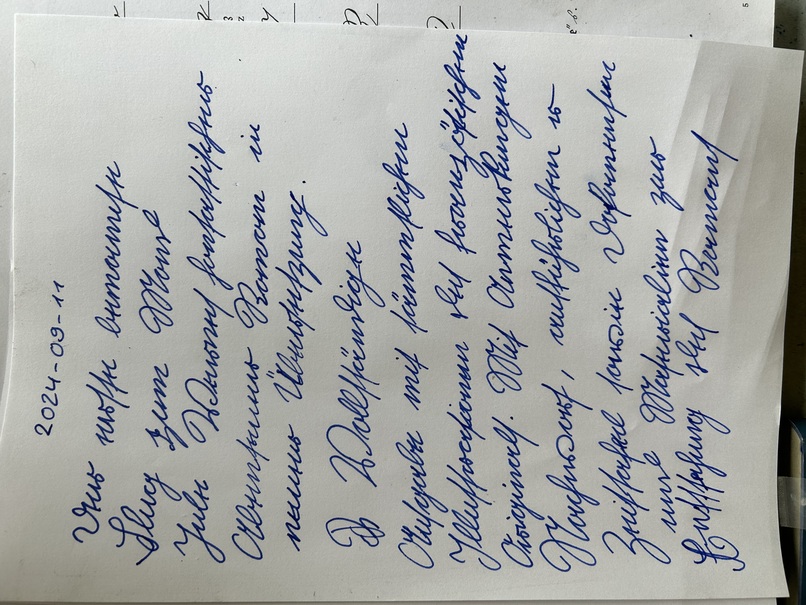 2024-09-11
Der erste bemannte
Flug zum Mond
Jules Vernes fantastischer
Abenteuer Roman in
neuer Übersetzung.
Vollständige
Ausgabe mit sämtlichen
Illustrationen des französischen
Originals. Mit Anmerkungen
Nachwort, ausführlichen
Zeittafel sowie Dokumenten
und Materialien zur
Entstehung des Romans